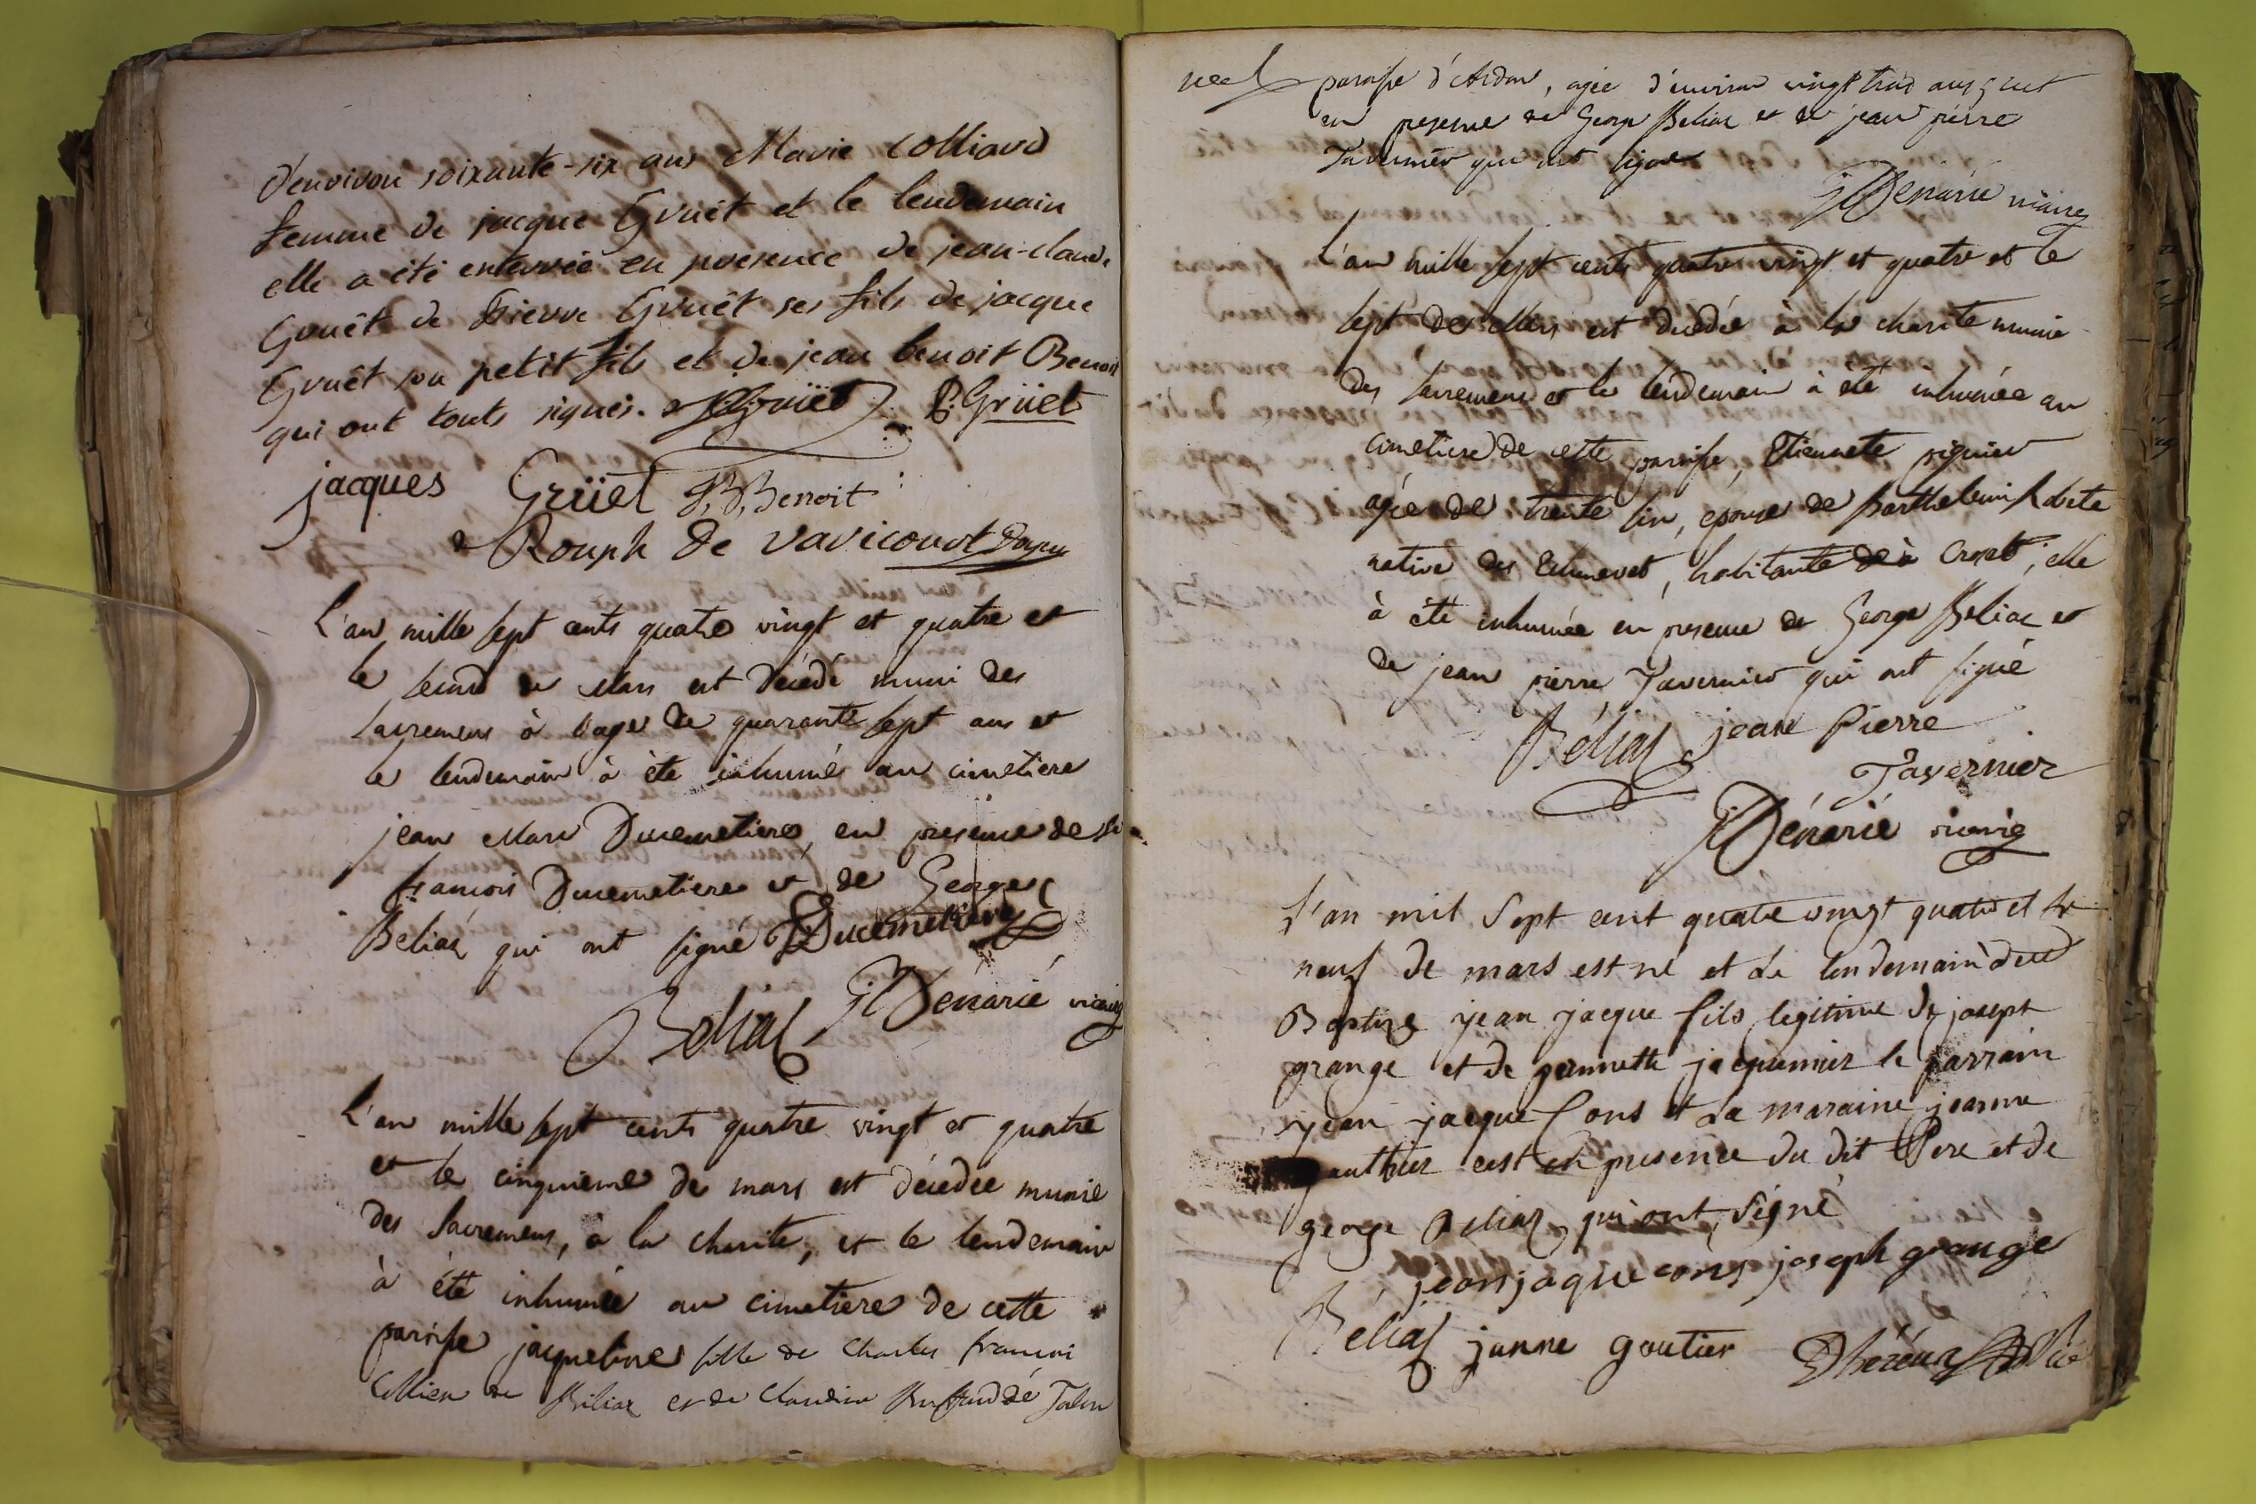 d'environ soixante-six ans Marie Colliard
femme de jacque Gruët et le lendemain
elle a été enterrée en presence de jean-claude
Gruêt de Pierre Gruêt ses fils de jacque
Gruêt son petit fils et de jean benoit Benoit
qui ont touts signés. Gruët P. Grüet
jacques Grüet J,B,Benoit
Rouph de Varicourt
L'an mille sept cents quatre vingt et quatre et
le second de Mars est décédé muni des
sacremens à l'age de quarante sept ans et
le lendemain à éte inhumé au cimetiere
jean Marc Ducimetiere, en presence de
francois Ducimetiere et de George
Béliaz qui ont signé Ducimetiere
Béliaz Dénarié vicaire
L'an mille sept cents quatre vingt et quatre
et le cinquieme de mars est décédée munie
des Sacremens, à la charité, et le lendemain
à été inhumée au cimetiere de cette
paroisse jacqueline fille de Charles francois
de et de Claudine
paroisse d'Ardon, agée d'environ vingt trois ans
en presence de George Beliaz et de jean pierre
Tavernier qui ont signé
Dénarié vicaire
L'an mille sept cents quatre vingt et quatre et le
sept de Mars est décédée à la charité munie
des sacremens et le lendemain à été inhumée au
cimetiere de cette paroisse, Etiennete
agée de trente six, epouse de Barthelemi
native des Echenevet, habitante de à Crozet; elle
à éte inhumée en presence de George Beliaz et
de jean pierre Tavernier qui ont signé
Béliaz jean Pierre
Tavernier
Dénarié vicaire
L'an mil sept cent quatre vingt quatre et le
neuf de mars est né et Le lendemain à eté
Baptisé jean jacque fils legitime de joseph
grange et de jeannette jacquemier le parrain
jean jacque Cons et La maraine jeanne
gauthier cest en presence du dit Pere et de
george Beliaz qui ont signé
jean jaque cons joseph grange
Béliaz janne goutier